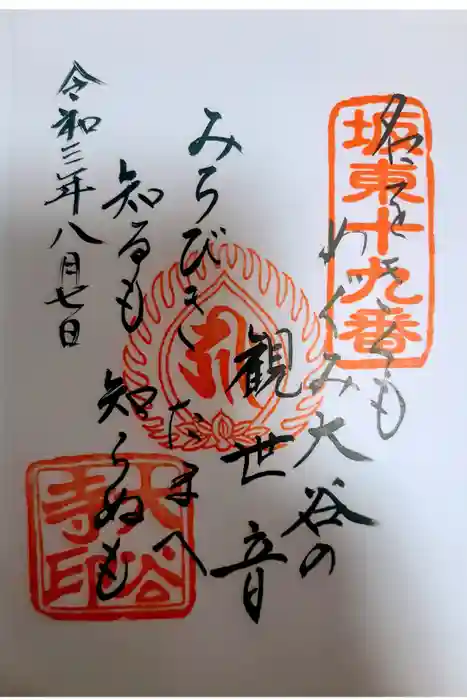 坂東十九番
名をきくも
めぐみ大谷の
観世音
みちびきたまへ
知るも知らぬも
令和三年八月七日
大谷寺印